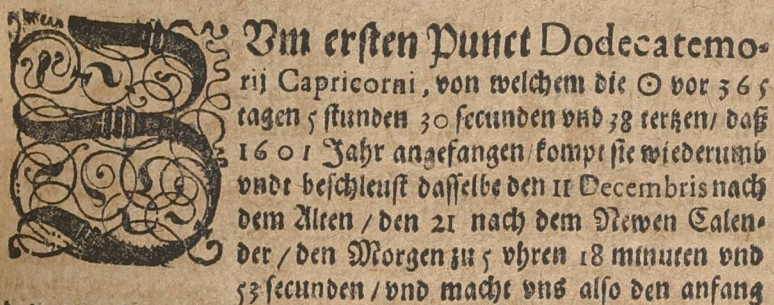 ZVm ersten Punct Dodecatemo-
rij Capricorni, von welchem die ☉ vor 365
tagen 5 stunden 30 secunden vnd 38 tertzen / daß
1601 Jahr angefangen / kompt sie wiederumb
vndt beschleust dasselbe den 11 Decembris nach
dem Alten / den 21 nach dem Newen Calen-
der / den Morgen zu 5 vhren 18 minuten vnd
53 secunden / vnd macht vns also den anfang